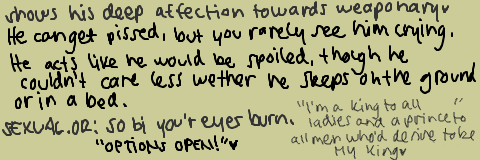 shows his deep affection towards weaponary♥
He can get pissed, but you rarely see him crying.
He acts like he would be spoiled, though he
couldn't care less wether he sleeps on the ground
or in a bed.
SEXUAL.OR: so bi you'r eyes burn.
"OPTIONS OPEN!"♥
"I'm a king to all "
ladies and a prince to
all men who'd desire to be
My King♥